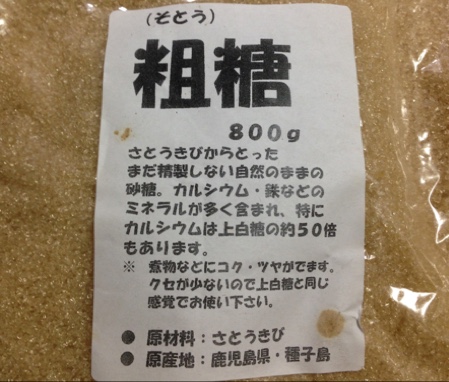 (そとう)
粗糖
800g
さとうきびからとった
まだ精製しない自然のままの
砂糖。カルシウム・鉄などの
ミネラルが多く含まれ、特に
カルシウムは上白糖の約50倍
もあります。
※ 煮物などにコク・ツヤがでます。
クセが少ないので上白糖と同じ
感覚でお使い下さい。
● 原材料：さとうきび
● 原産地：鹿児島県・種子島